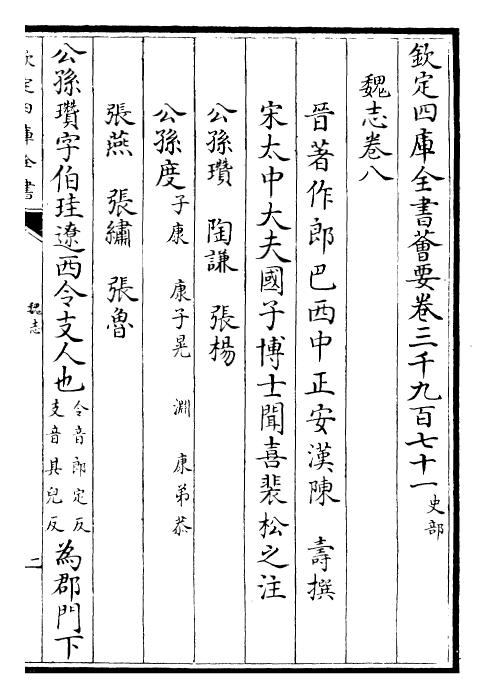 欽定四庫全書薈要卷三千九百七十一 史部
魏志卷八
晉著作郎巴西中正安漢陳 壽撰
宋太中大夫國子博士聞喜裴松之注
公孫瓚 陶謙 張楊
公孫度 子康 康子晃 淵 康弟恭
張燕 張繡 張魯
公孫瓚字伯珪遼西令支人也 令音郎定反 支音其兒反 為郡門下
欽定四庫全書
魏志
二